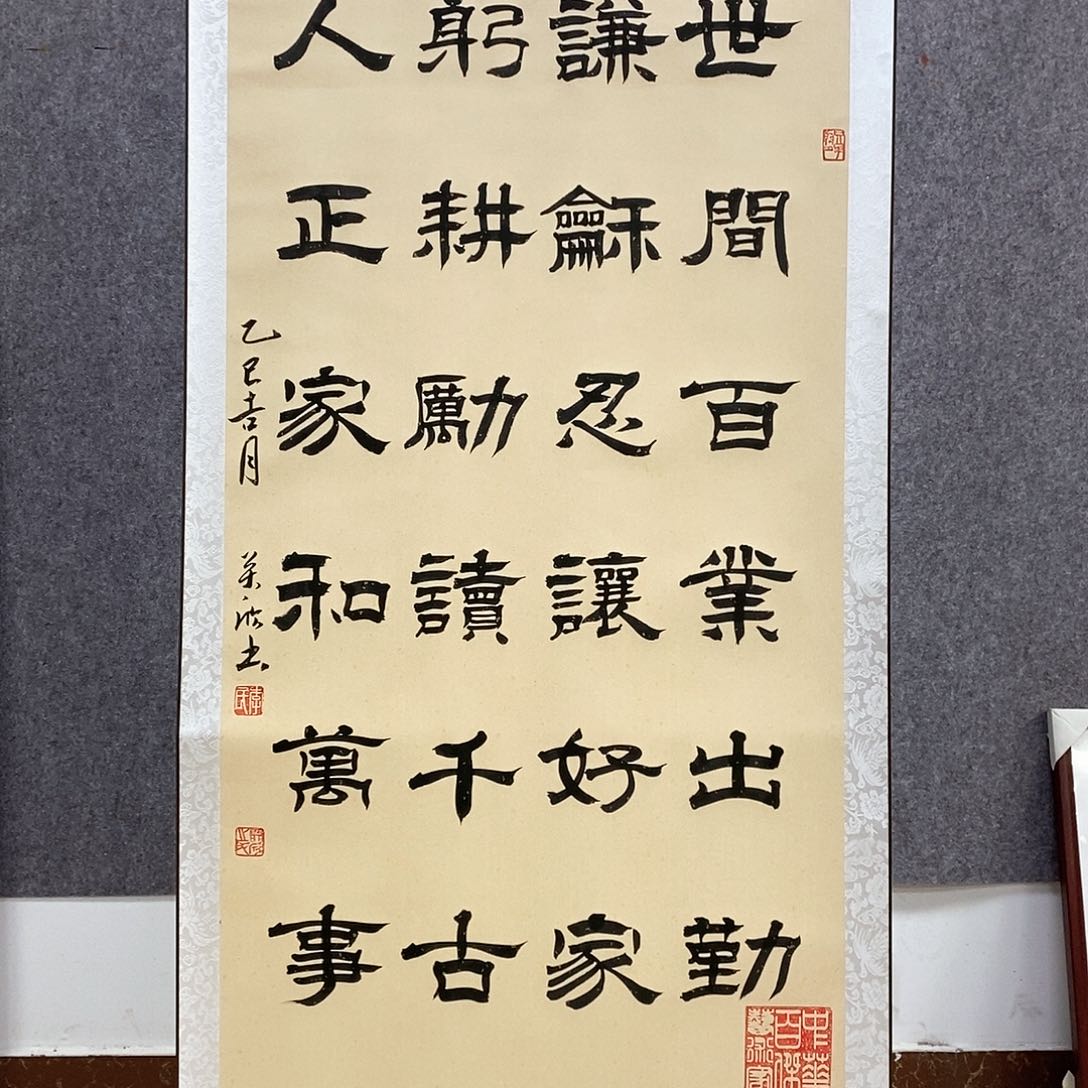 世間百業出勤
謙龢忍讓好家
躬耕勵讀千古
人正家和萬事
乙巳吉月
书
中華
百傑